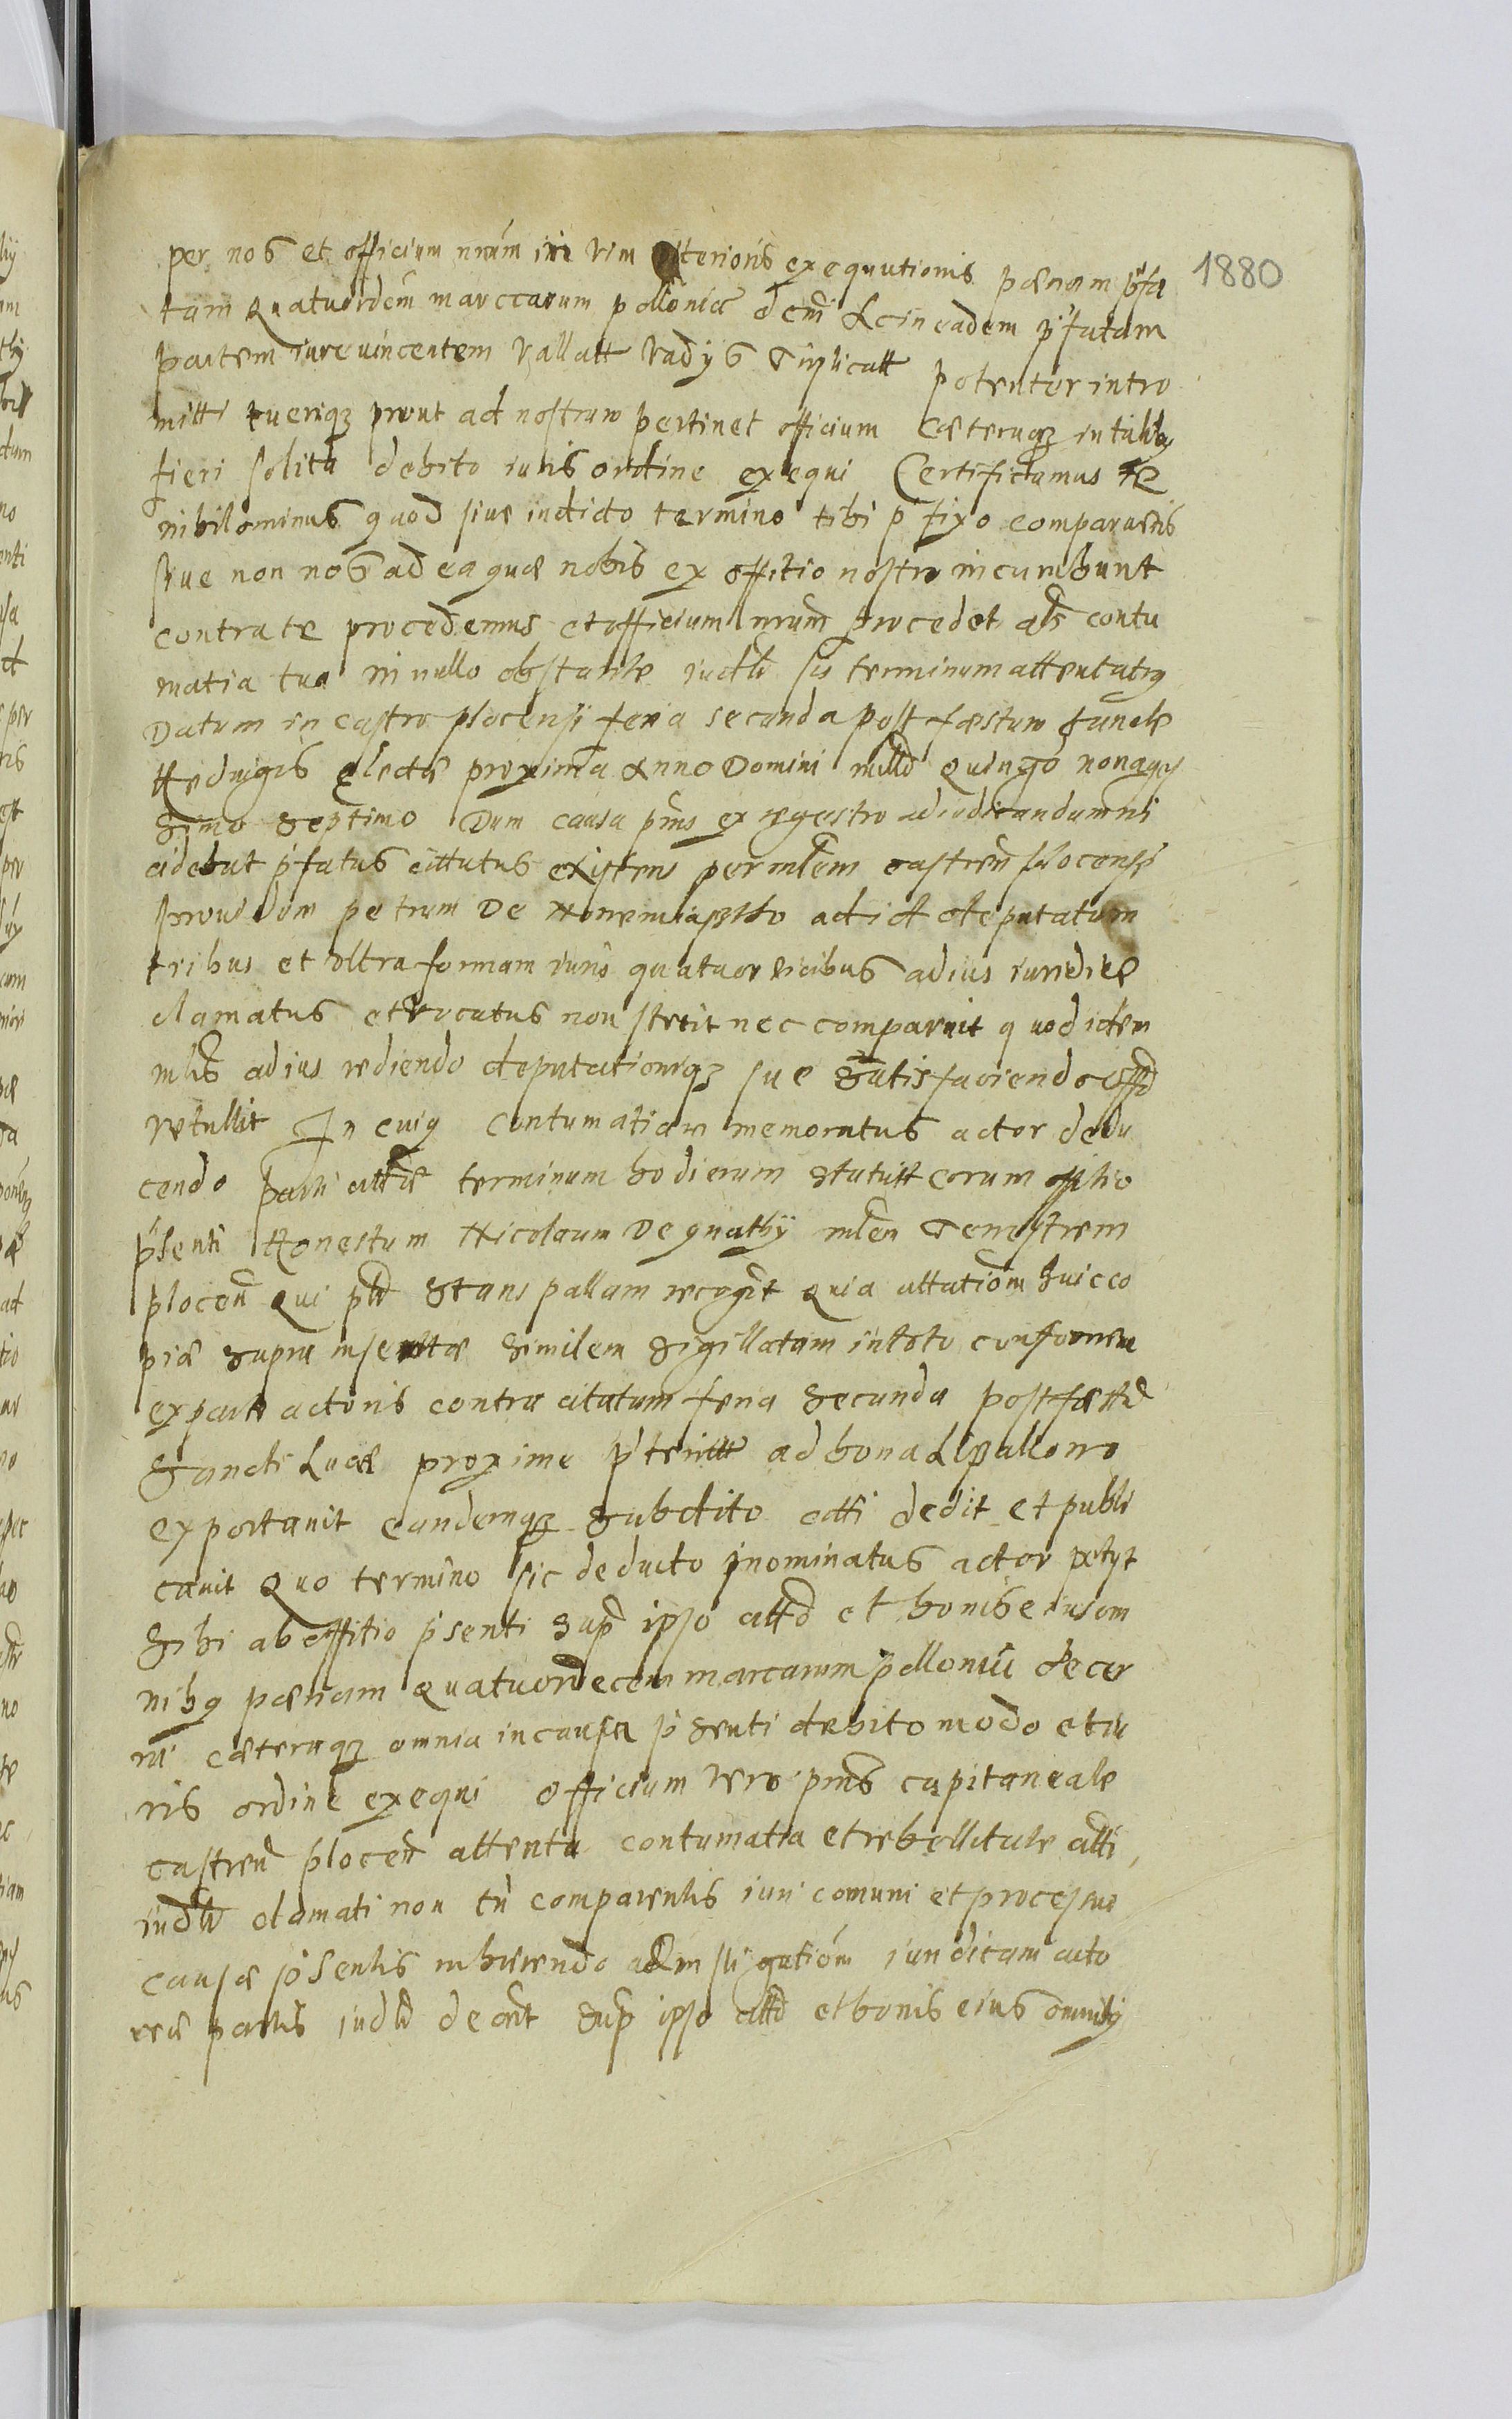 1880
per nos et officium nrum in vim ulterioris exequutionis pœnam p̃fa
tam Quatuordem marccarum polloniœ decni & in eadem p̃fatam
partem iure vincentem vallatt vadys Triplicatt potenter intro
mitti tueriq3 prout ad nostrum pertinet officium Cœteraq3 in talibq
fieri solita debito iuris ordine exequi Certificamus te
nihilominus quod siue in dicto termino tibi p̃fixo comparueris
siue non nos ad ea quœ nobis ex offitio nostro incumbunt
contra te procedemus et officium nrum procedet als contu
matia tua in nullo obstante iudlr sis terminum attentatq
Datum in castro plocensi feria secunda post fœstum Sanctœ
Heduigis electœ proxima Anno Domini milld Quingo nonagesi
Simo Septimo Dum causa pñs ex regestro adiudicandum
cidebat p̃fatus cittatus existens per mlem castren plocensi
Prouidum petrum De Noremiastho ad id deputatum
tribus et vltra formam iuris quatuor vicibus ad ius iuridice
clamatus et vocatus non stetit nec comparuit quod idem
mlis ad ius rediendo deputationiq3 suœ Satisfaciendo offo
retullit In cuiq Contumatiam memoratus actor dedu
cendo parti cittatœ terminum hodiernum Statuitt coram offitio
p̃senti Honestum Nicolaum De gnathy mlem Terrestrem
plocen Qui ptr Stans pallam recogit Quia cittationem huic co
piœ Supra insertœ Similem Sigillatam in toto conformem
ex parte actoris contra citatum feria Secunda post fœstd
Sancti Lucœ proxime p̃teritt ad bona Lpallowo
exportauit eandemq3 Subdito citti dedit et publi
cauit Quo termino sic deducto p̃nominatus actor petyt
Sibi ab offitio p̃senti Sup̃ ipso cittd et bonis eius om
nibq pœnam Quatuordecem marcarum polloniœ decer
ni cœteraq3 omnia in causa p̃senti debito modo et iu
ris ordine exequi Officium Vero pñs capitaneale
castren plocen attenta contumatia et rebellitate citti
iudlr clamati non tñ comparentis iuri comuni et processui
causœ p̃sentis inhœrendo ad instigationem iuridicam acto
reœ partis iudld decrit Sup̃ ipso cittd et bonis eius omnibq